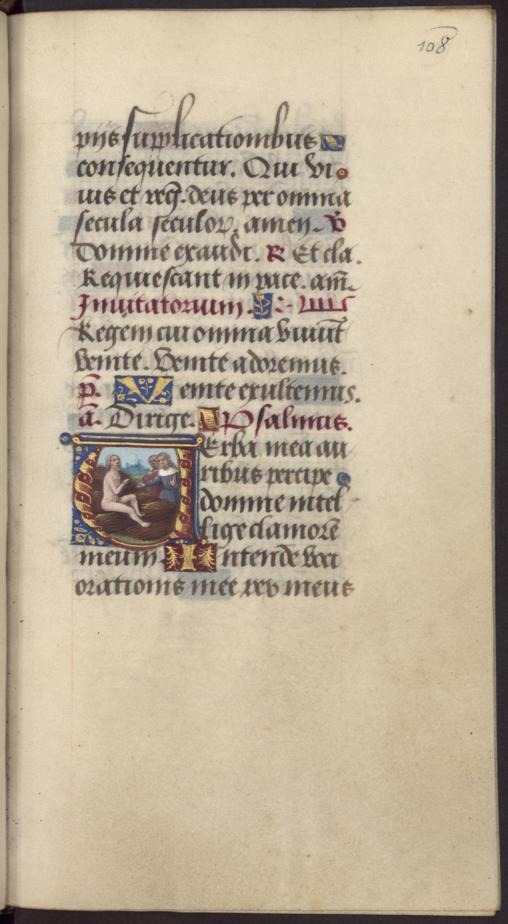 108
pijs supplicationibus
consequentur. Qui vi
uis et reg. deus per omnia
secula seculoꝝ. amen. V
Domine exaudi. R Et cla.
Requiescant in pace. am̄.
Inuitatorium.
Regem cui omnia viuūt
venite. Venite adoremus.
p̄. Venite exultemus.
a. Dirige. Psalmus.
Verba mea au
ribus percipe
domine intel
lige clamorē
meum. Intende voci
orationis mee rex meus